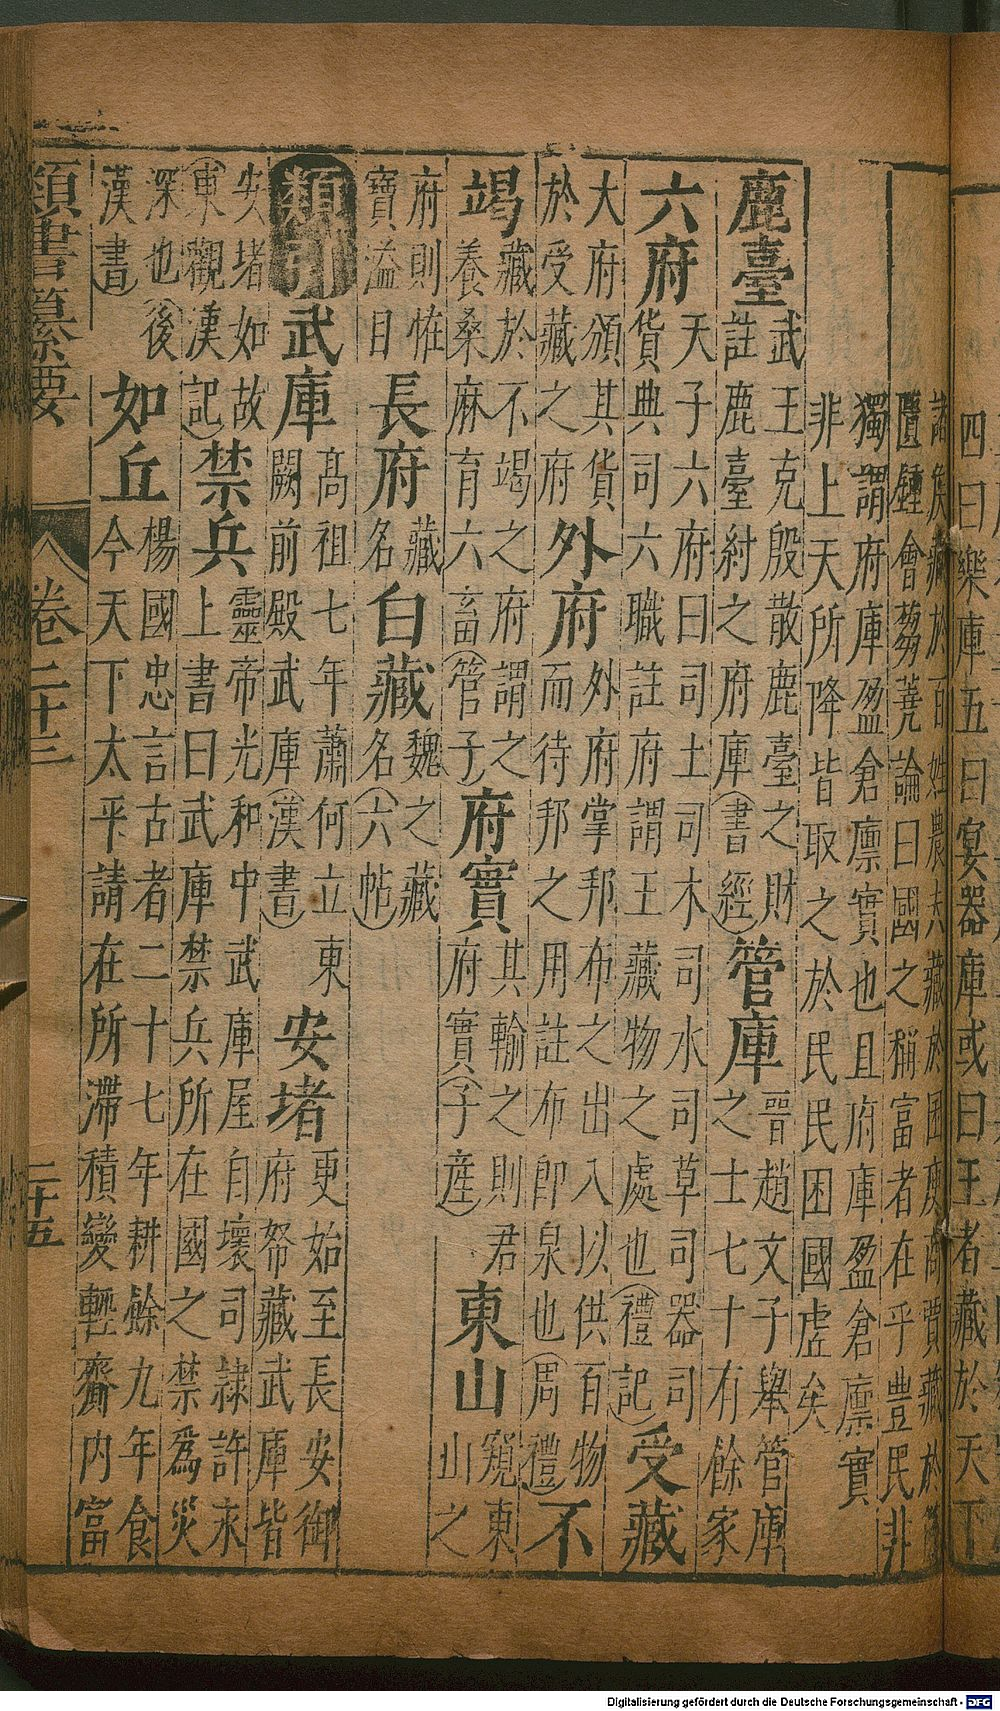 四曰樂庫五曰宴器庫或曰王者藏於天下
諸侯藏於百姓農夫藏於囷庾商賈藏於篋
匱鍾會芻蕘論曰國之稱富者在乎豊民非
獨謂府庫盈倉廪實也且府庫盈倉廪實
非上天所降皆取之於民民困國虛矣
鹿臺武王克殷散鹿臺之財註鹿臺紂之府庫(書經)管庫晉趙文子舉管庫之士七十有餘家
六府天子六府曰司土司木司水司草司器司貨典司六職註府謂王藏物之處也(禮記)受藏
大府頒其貨於受藏之府外府外府掌邦布之出入以供百物而待邦之用註布即泉也(周禮)不
竭藏於不竭之府謂之養桑麻育六畜(管子)府實其輸之則君府實(子產)東山窺東山之
府則恠寶溢目長府藏名白藏魏之藏名(六帖)
類引武庫高祖七年蕭何立東闕前殿武庫(漢書)安堵更始至長安御府帑藏武庫皆
安堵如故(東觀漢記)禁兵靈帝光和中武庫屋自壞司隷許永上書曰武庫禁兵所在國之禁為災
深也(後漢書)如丘楊國忠言古者二十七年耕餘九年食今天下太平請在所滯積變輕齎內富
類書纂要 卷二十三 二十五
Digitalisierung gefördert durch die Deutsche Forschungsgemeinschaft - DFG